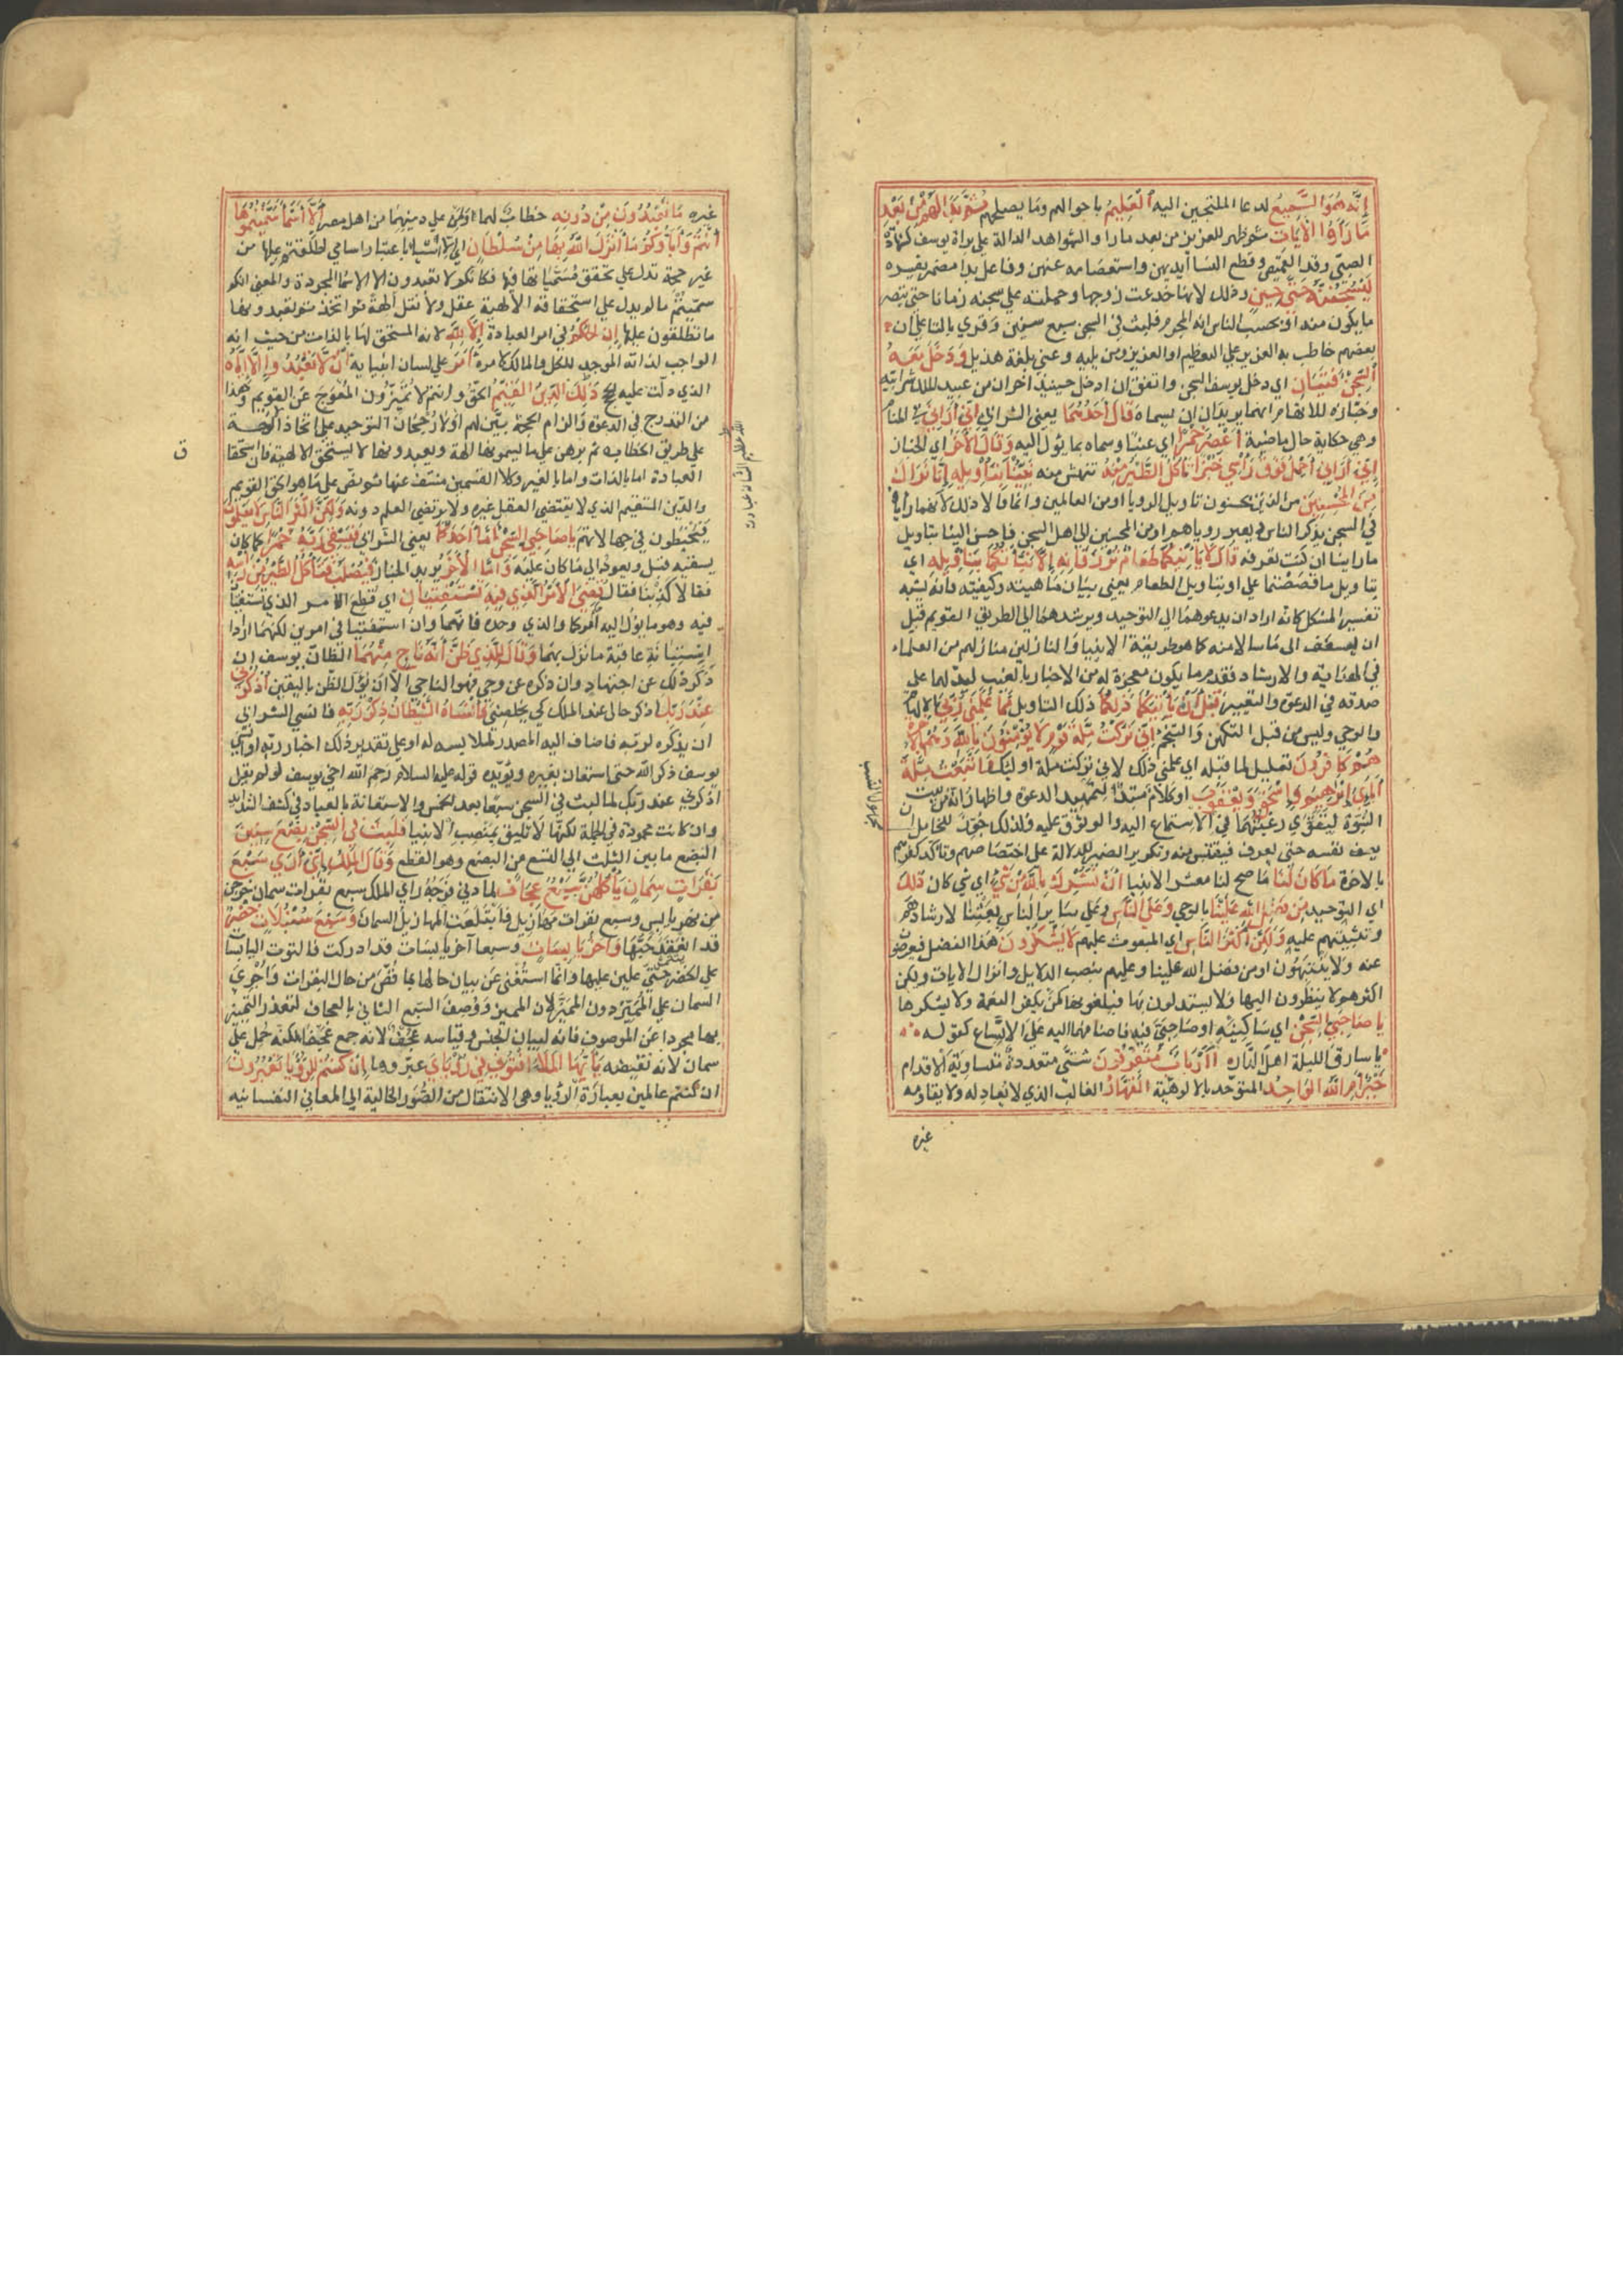 إنه هو السميع لدعا الملتجين اليه العليم باحوالهم وما يصلحهم ثم بدا لهم من بعد
ما رأوا الآيات ثم ظهر للعزيز من بعد ما راوا الشواهد الدالة على براة يوسف كشهادة
الصبي وقد القميص وقطع النسا ايديهن واستعصامه عنهن وفاعل بدا مضمر يفسره
ليسجننه حتى حين وذلك لانها خدعت زوجها وحملته على سجنه زمانا حتى تبصر
ما يكون منه او يحسب الناس انه المجرم فلبث في السجن سبع سنين وقري بالتا على ان
بعضهم خاطب به العزيز على التعظيم او العزيز ومن يليه وعتى بلغة هذيل ودخل معه
السجن فتيان اي دخل يوسف السجن واتفق ان ادخل حينيذ اخران من عبيد الملك شرابيه
وخبازه للاتهام انهما يريدان ان يسماه قال أحدهما يعني الشرابي إني أراني في المنام
وهي حكاية حال ماضية أعصر خمرا اي عنبا وسماه بما يؤل اليه وقال الآخر اي الخباز
إني أراني أحمل فوق رأسي خبزا تأكل الطير منه تنهش منه نبئنا بتأويله إنا نراك
من المحسنين من الذين يحسنون تاويل الرويا او من العالمين وانما قالا ذلك لانهما راياه
في السجن يذكر الناس ويعبر روياهم او من المحسنين الى اهل السجن فاحسن الينا بتاويل
ما راينا ان كنت تعرفه قال لا يأتيكما طعام ترزقانه إلا نبأتكما بتأويله اي
بتاويل ما قصصتما علي او بتاويل الطعام يعني بيان ماهيته وكيفيته فانه يشبه
تفسير المشكل كانه اراد ان يدعوهما الى التوحيد ويرشدهما الى الطريق القويم قبل
ان يسعف الى ما سالا منه كما هو طريقة الانبيا والنازلين منازلهم من العلماء
في الهداية والارشاد فقدم ما يكون معجزة له من الاخبار بالغيب ليدلهما على
صدقه في الدعوة والتعبير قبل أن يأتيكما ذلكما ذلك التاويل مما علمني ربي بالالهام
والوحي وليس من قبل التكهن والتنجم إني تركت ملة قوم لا يؤمنون بالله وهم بالآخرة
هم كافرون تعليل لما قبله اي علمني ذلك لاني تركت ملة اوليك واتبعت ملة
آبائي إبراهيم وإسحق ويعقوب او كلام مبتدأ لتمهيد الدعوة واظهار انه من بيت
النبوة ليقوى رغبتهما في الاستماع اليه والوثوق عليه ولذلك جوز للخامل ان
يصف نفسه حتى يعرف فيقتبس منه وتكرير الضمير للدلالة على اختصاصهم وتاكد كفرهم
بالاخرة ما كان لنا ما صح لنا معشر الانبيا أن نشرك بالله من شيء اي شي كان ذلك
اي التوحيد من فضل الله علينا بالوحي وعلى الناس وعلى ساير الناس يبعثنا لارشادهم
وتثبيتهم عليه ولكن أكثر الناس اي المبعوث عليهم لا يشكرون هذا الفضل فيعرضون
عنه ولا ينتبهون او من فضل الله علينا وعليهم بنصب الدلايل وانزال الايات ولكن
اكثرهم لا ينظرون اليها ولا يستدلون بها فيلغونها كمن يكفر النعمة ولا يشكرها
يا صاحبي السجن اي ساكنيه او صاحبيّ فيه فاضافهما اليه على الاتساع كقوله
يا سارق الليلة اهل الداره أأرباب متفرقون شتى متعددة متساوية الاقدام
خير أم الله الواحد المتوحد بالالوهية القهار الغالب الذي لا يعادله ولا يقاومه
غيره
غيره ما تعبدون من دونه خطاب لهما اولمن على دينهما من اهل مصر إلا أسماء سميتموها
أنتم وآباؤكم ما أنزل الله بها من سلطان اي الا اشيا باعتبار اسامي اطلقتم عليها من
غير حجة تدل على تحقق مسمياتها فيها فكانكم لا تعبدون الا الاسما المجردة والمعنى انكم
سميتم مالم يدل على استحقاقه الالهية عقل ولا نقل الهة ثم اتخذتم تعبدونها
ما تطلقون عليها إن الحكم في امر العبادة إلا لله لانه المستحق لها بالذات من حيث انه
الواجب لذاته الموجد للكل والمالك لامره أمر على لسان انبيايه أن لا تعبدوا إلا إياه
الذي دلت عليه الحجج ذلك الدين القيم الحق وانتم لا تميزون المعوج عن القويم وهذا
من التدرج في الدعوة والزام الحجة بين لهم اولا رجحان التوحيد على اتخاذ الالهة
على طريق الخطابه ثم برهن على ما يسمونها الهة ويعبدونها لا يستحق الالهية فان استحقا
ق
العبادة اما بالذات واما بالغير وكلا القسمين منتف عنها ثم نص على ما هو الحق القويم
والدين المستقيم الذي لا يقتضي العقل غيره ولا يرتضي العلم دونه ولكن أكثر الناس لا يعلمون
فيخبطون في جهالاتهم يا صاحبي السجن أما أحدكما يعني الشرابي فيسقي ربه خمرا كما كان
يسقيه قبل ويعود الى ما كان عليه وأما الآخر يريد الخباز فيصلب فتأكل الطير من رأسه
فقالا كذبنا فقال قضي الأمر الذي فيه تستفتيان اي قطع الامر الذي تستفتيا
فيه وهو ما يؤل اليه امركما ولذلك وحده فانهما وان استفتيا في امرين لكنهما ارادا
استبانة عاقبة ما نزل بهما وقال للذي ظن أنه ناج منهما الظان يوسف ان
ذكر ذلك عن اجتهاد وان ذكره عن وحي فهو الناجي الا ان يؤل الظن باليقين اذكرني
عند ربك اذكر حالي عند الملك كي يخلصني فأنساه الشيطان ذكر ربه فانسى الشرابي
ان يذكره لربه فاضاف اليه المصدر لملابسه له او على تقدير ذكر اخبار ربه او انسي
يوسف ذكر الله حتى استعان بغيره ويؤيده قوله عليه السلام رحم الله اخي يوسف لو لم يقل
اذكرني عند ربك لما لبث في السجن سبعا بعد الخمس والاستعانة بالعباد في كشف الشدايد
وان كانت محمودة في الجملة لكنها لا تليق بمنصب الانبيا فلبث في السجن بضع سنين
البضع ما بين الثلث الى التسع من البضع وهو القطع وقال الملك إني أرى سبع
بقرات سمان يأكلهن سبع عجاف لما دنى فرجه راى الملك سبع بقرات سمان خرجن
من نهر يابس وسبع بقرات مهازيل فابتلعت المهازيل السمان وسبع سنبلات خضر
قد انعقد حبها وأخر يابسات وسبعا اخر يابسات قد ادركت فالتوت اليابسات
على الخضر حتى غلبن عليها وانما استغنى عن بيان حالها بما قص من حال البقرات واجرى
السمان على المميز دون المميَّز لان التمييز بها ووصف السبع الثاني بالعجاف لتعذر التمييز
بها مجردا عن الموصوف فانه لبيان الجنس وقياسه عجف لانه جمع عجفا لكنه حمل على
سمان لانه نقيضه يا أيها الملأ أفتوني في رؤياي عبروها إن كنتم للرؤيا تعبرون
ان كنتم عالمين بعبارة الرؤيا وهي الانتقال من الصور الخيالية الى المعاني النفسانيه